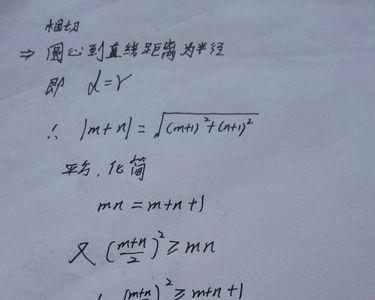 相切
⇒ 圆心到直线距离为半径
即 d=r
∴ |m+n| = √((m+1)²+(n+1)²)
平方,化简
mn = m+n+1
又 ((m+n)/2)² ≥ mn
∴ ((m+n)/2)² ≥ m+n+1